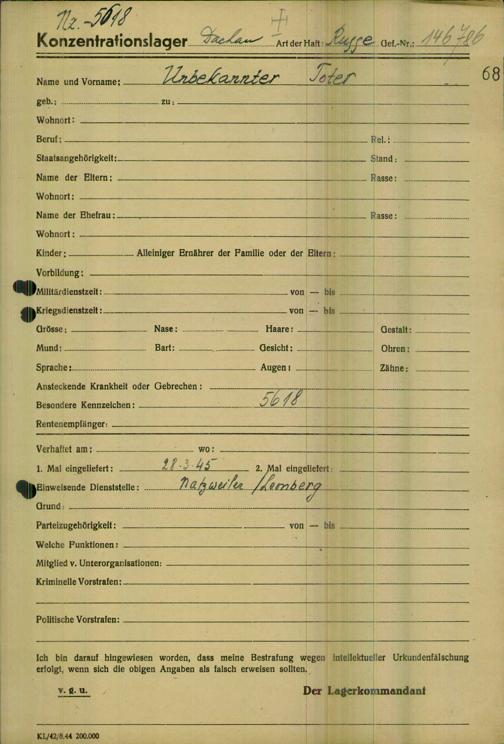 Nz.-5618
Konzentrationslager Dachau Art der Haft: Russe Gef.-Nr.: 146786
68
Name und Vorname: Unbekannter Toter
geb.: zu:
Wohnort:
Beruf: Rel.:
Staatsangehörigkeit: Stand:
Name der Eltern: Rasse:
Wohnort:
Name der Ehefrau: Rasse:
Wohnort:
Kinder: Alleiniger Ernährer der Familie oder der Eltern:
Vorbildung:
Militärdienstzeit: von — bis
Kriegsdienstzeit: von — bis
Grösse: Nase: Haare: Gestalt:
Mund: Bart: Gesicht: Ohren:
Sprache: Augen: Zähne:
Ansteckende Krankheit oder Gebrechen:
Besondere Kennzeichen: 5618
Rentenempfänger:
Verhaftet am: wo:
1. Mal eingeliefert: 28.3.45 2. Mal eingeliefert:
Einweisende Dienststelle: Natzweiler /Leonberg
Grund:
Parteizugehörigkeit: von — bis
Welche Funktionen:
Mitglied v. Unterorganisationen:
Kriminelle Vorstrafen:
Politische Vorstrafen:
Ich bin darauf hingewiesen worden, dass meine Bestrafung wegen intellektueller Urkundenfälschung
erfolgt, wenn sich die obigen Angaben als falsch erweisen sollten.
v. g. u. Der Lagerkommandant
KL/42/8.44 200.000